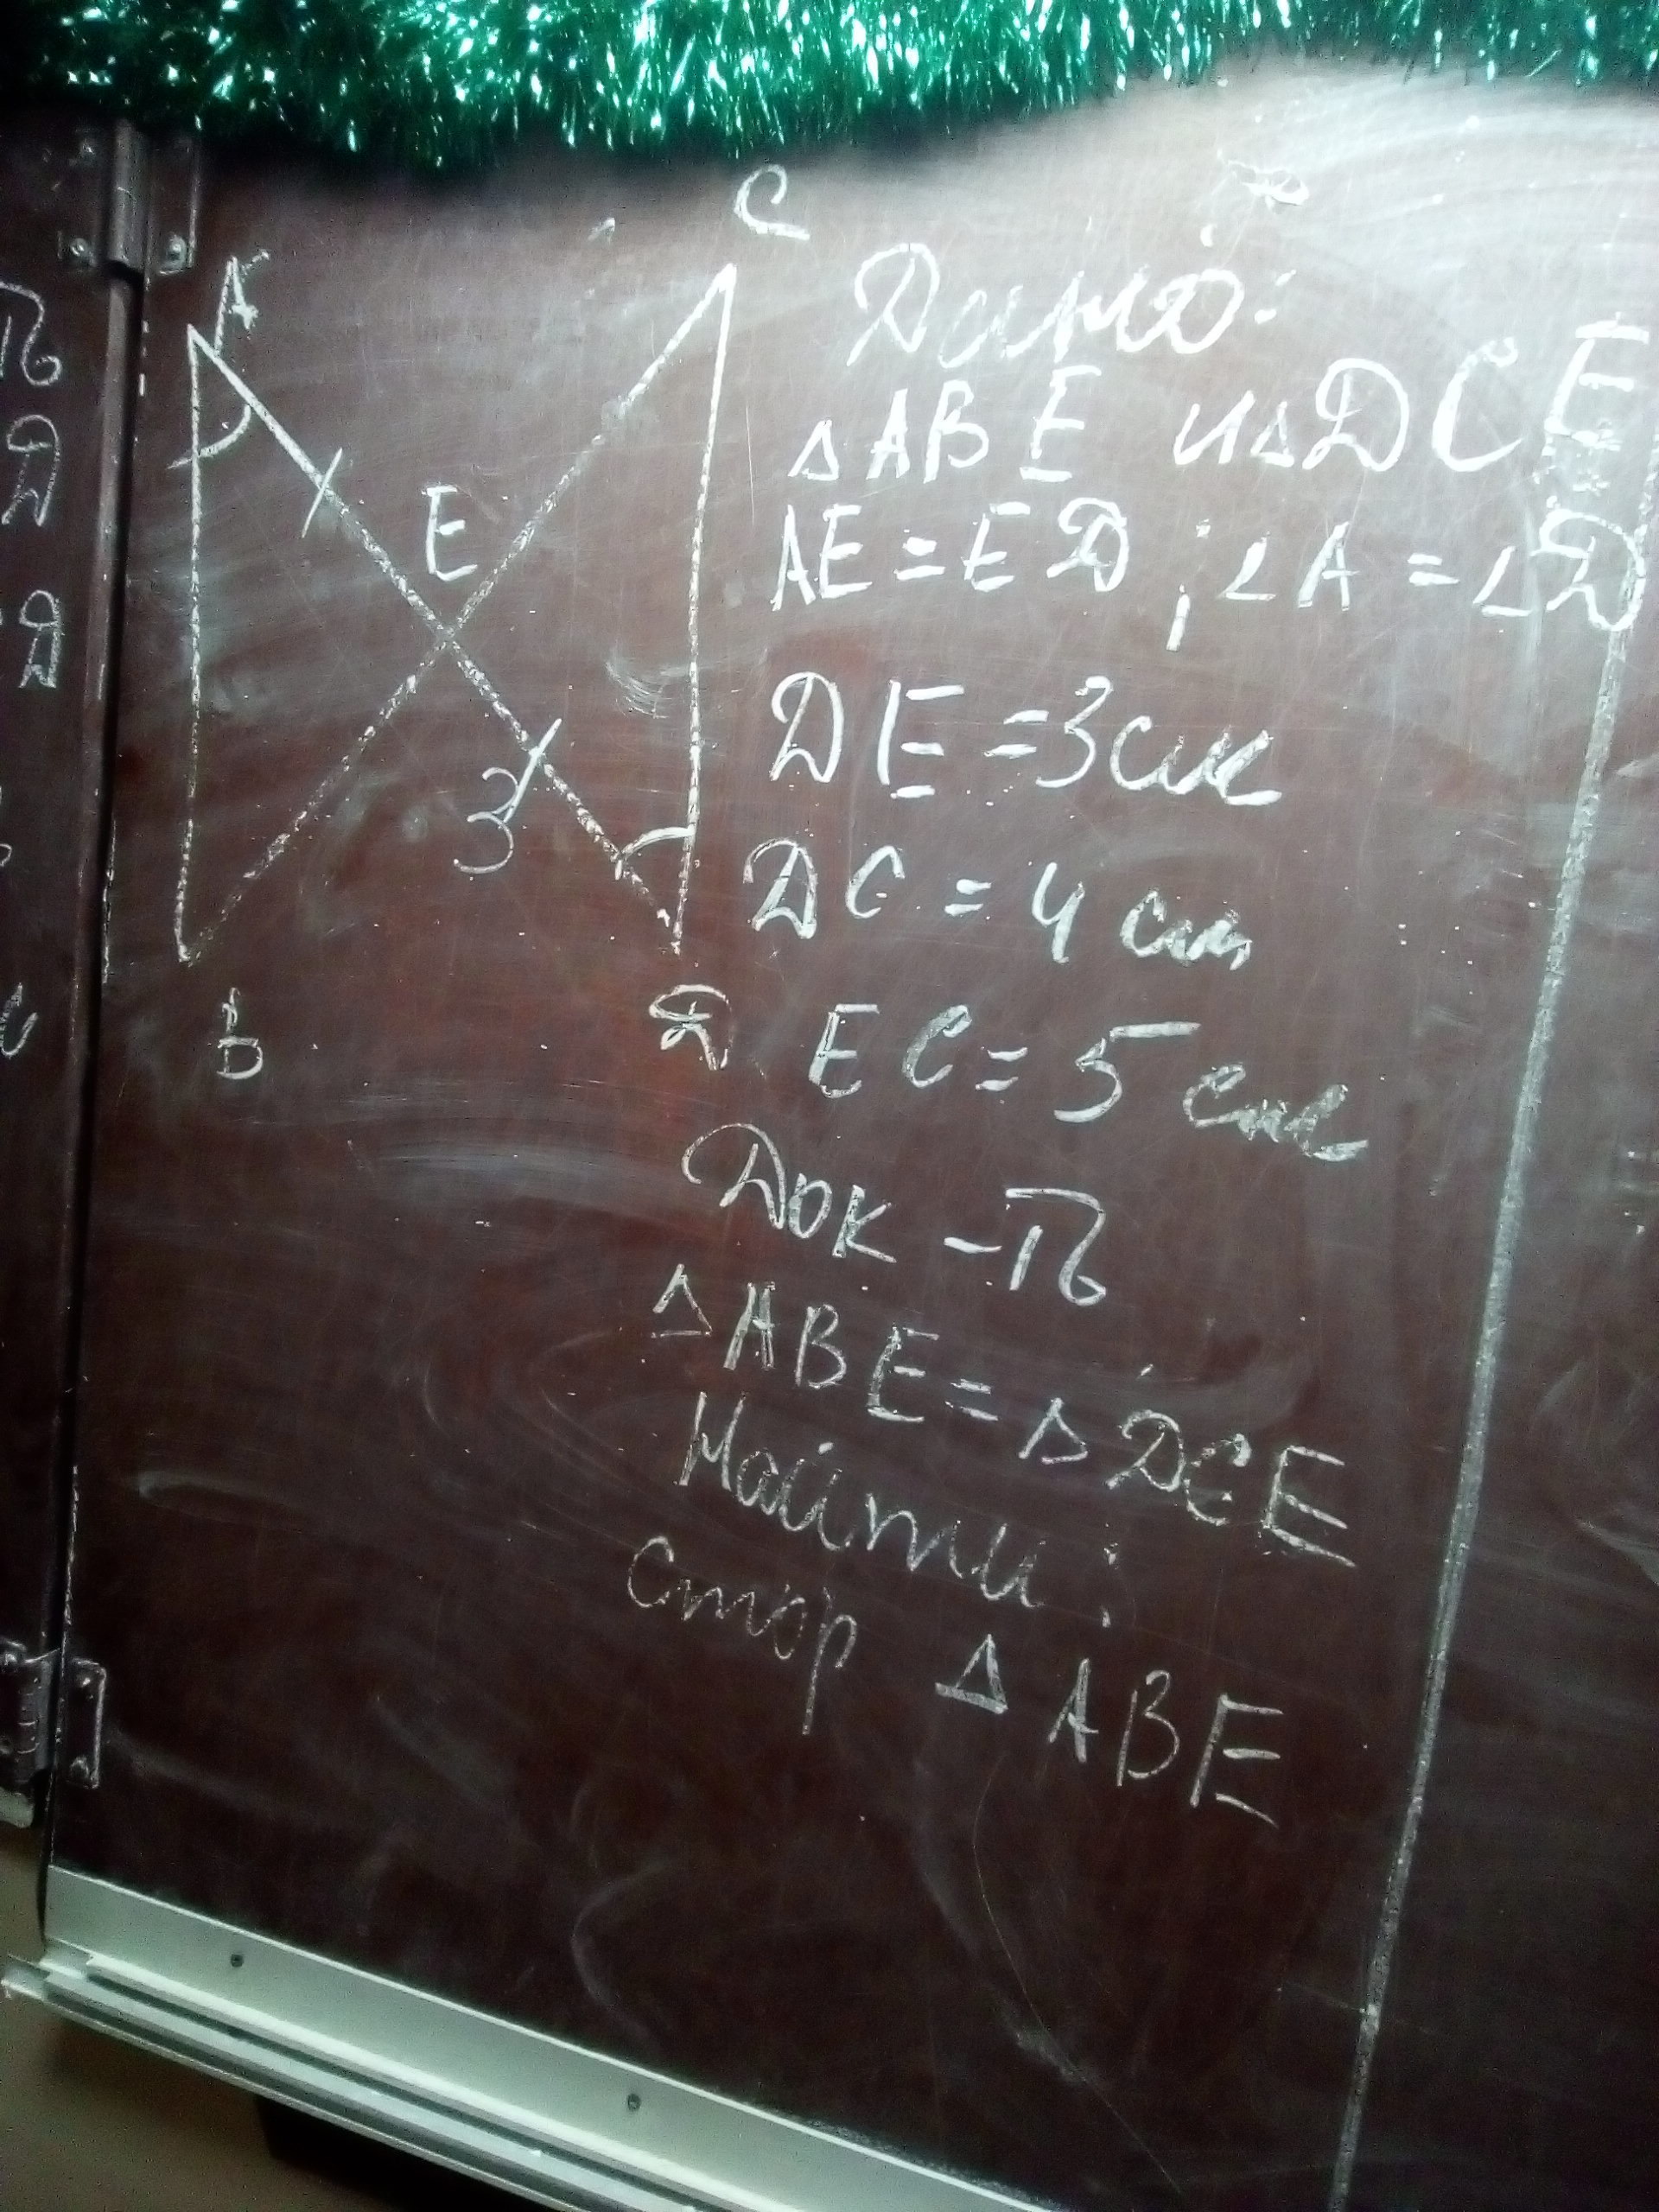 A
C
E
3
B
Д
Дано:
△ABE и △DCE
AE = ED; ∠A = ∠D
DE = 3 см
DC = 4 см
EC = 5 см
Док-ть
△ABE = △DCE
Найти:
Стор △ABE